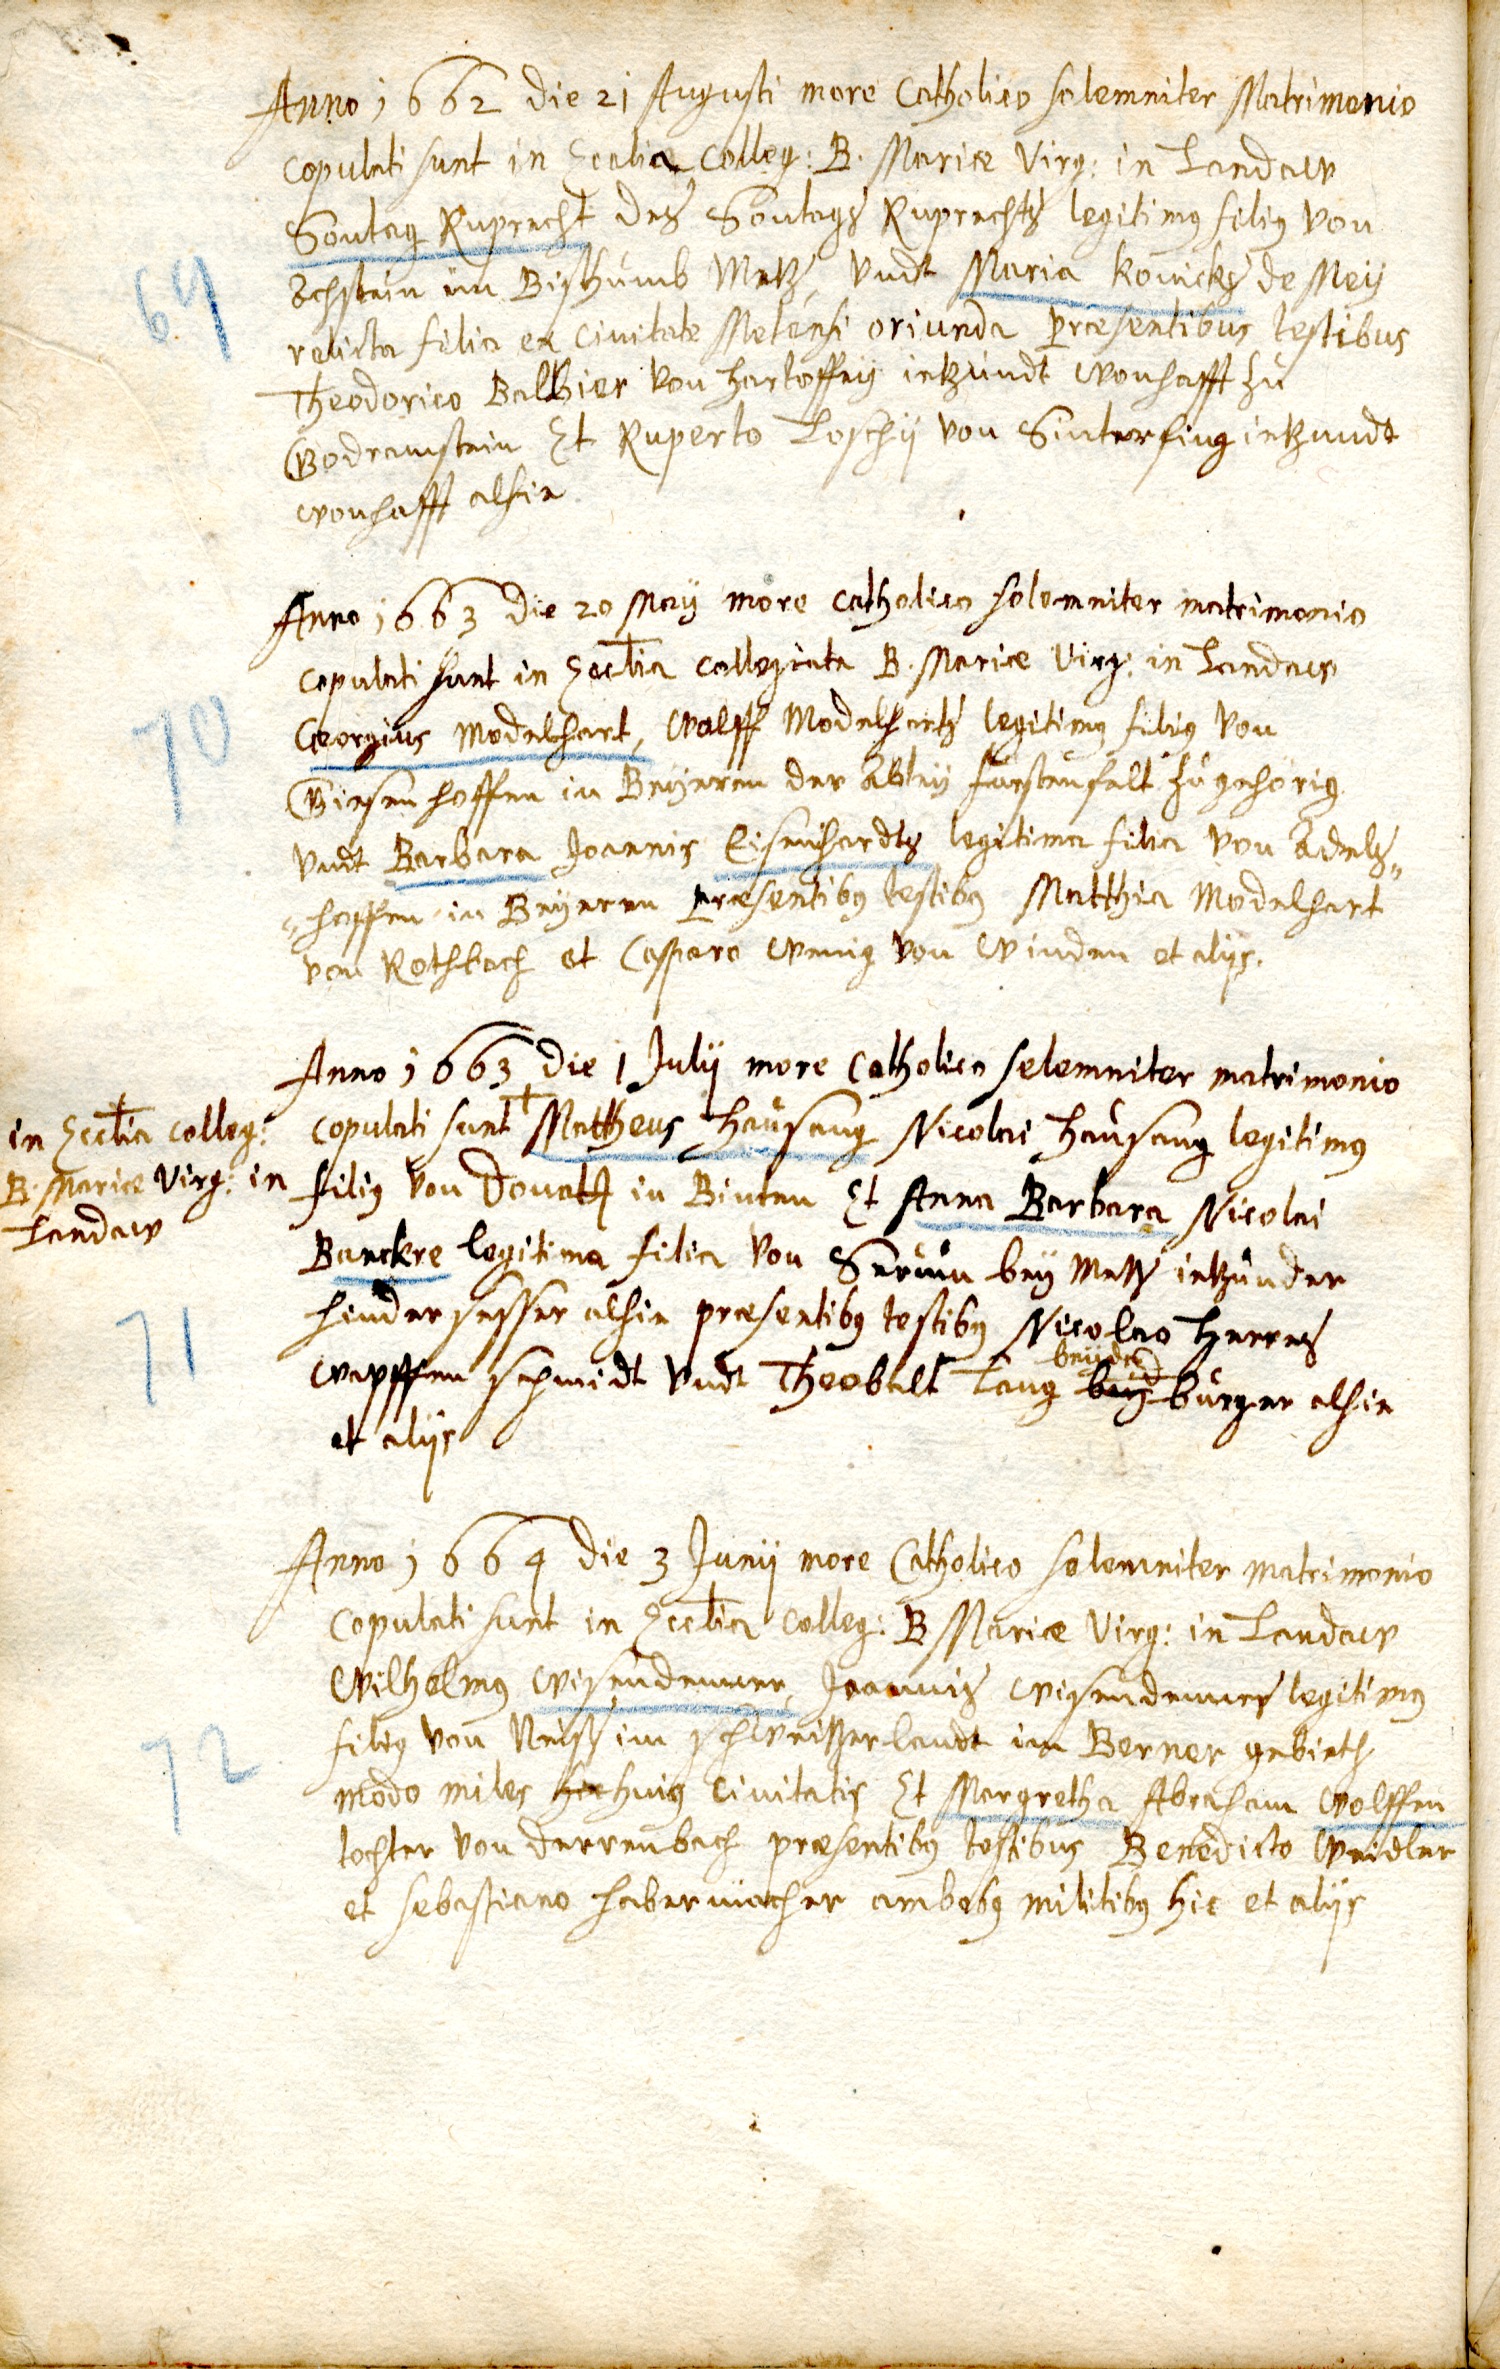 Anno 1662 die 21 Augusti more Catholico solemniter Matrimonio
copulati sunt in Ecclia Colleg: B. Mariæ Virg: in Landaw
69
Sontag Ruprecht des Sontags Ruprechts legitimg filig von
Achstein im Bisthumb Metz, vndt Maria Konicks de Meij
relicta filia ex Ciuitate Metensi oriunda præsentibus testibus
Theodorico Balbier von hartoffen ietzundt wonhafft zu
Godramstein Et Ruperto Loschij von Sinterfing ietzundt
wonhafft alhie
Anno 1663 die 20 Maij more catholico solemniter matrimonio
copulati sunt in Ecctia collegiata B. Mariæ Virg: in Landaw
70
Georgius Modelhart, Wolff Modelharts legitimg filig von
Giesenhoffen in Beyeren der Abtey furstenfelt zugehörig
vndt Barbara Joannis Eisenhardts legitima filia von Adels„
„hoffen in Beyeren præsentibg testibg Matthia Modelhart
von Rothbach et Casparo Wenig von Winden et alijs.
Anno 1663 die 1 Julij more Catholico solemniter matrimonio
in Ecctia colleg:
B. Mariæ Virg: in
Landaw
copulati sunt + Mattheus hausang Nicolai hausang legitimg
filig von Donatt in Binten Et Anna Barbara Nicolai
Banckre legitima filia von Seruin bey Metz ietzunder
71
hindersesser alhie præsentibg testibg Nicolao Herres
beyde
wapffen schmidt vndt Theobalt Lang bey burger alhie
et alijs
Anno 1664 die 3 Junij more Catholico solemniter matrimonio
copulati sunt in Ecctia Colleg: B Mariæ Virg: in Landaw
Wilhelmg Wisendemer, Joannis Wisendemers legitimg
filig von im schweitzerlandt im Berner gebieth
72
modo miles huig Ciuitatis Et Margretha Abraham Wolffen
tochter von derrenbach præsentibg testibus Benedicto Weidler
et Sebastiano habermacher ambobg militibg hic et alijs